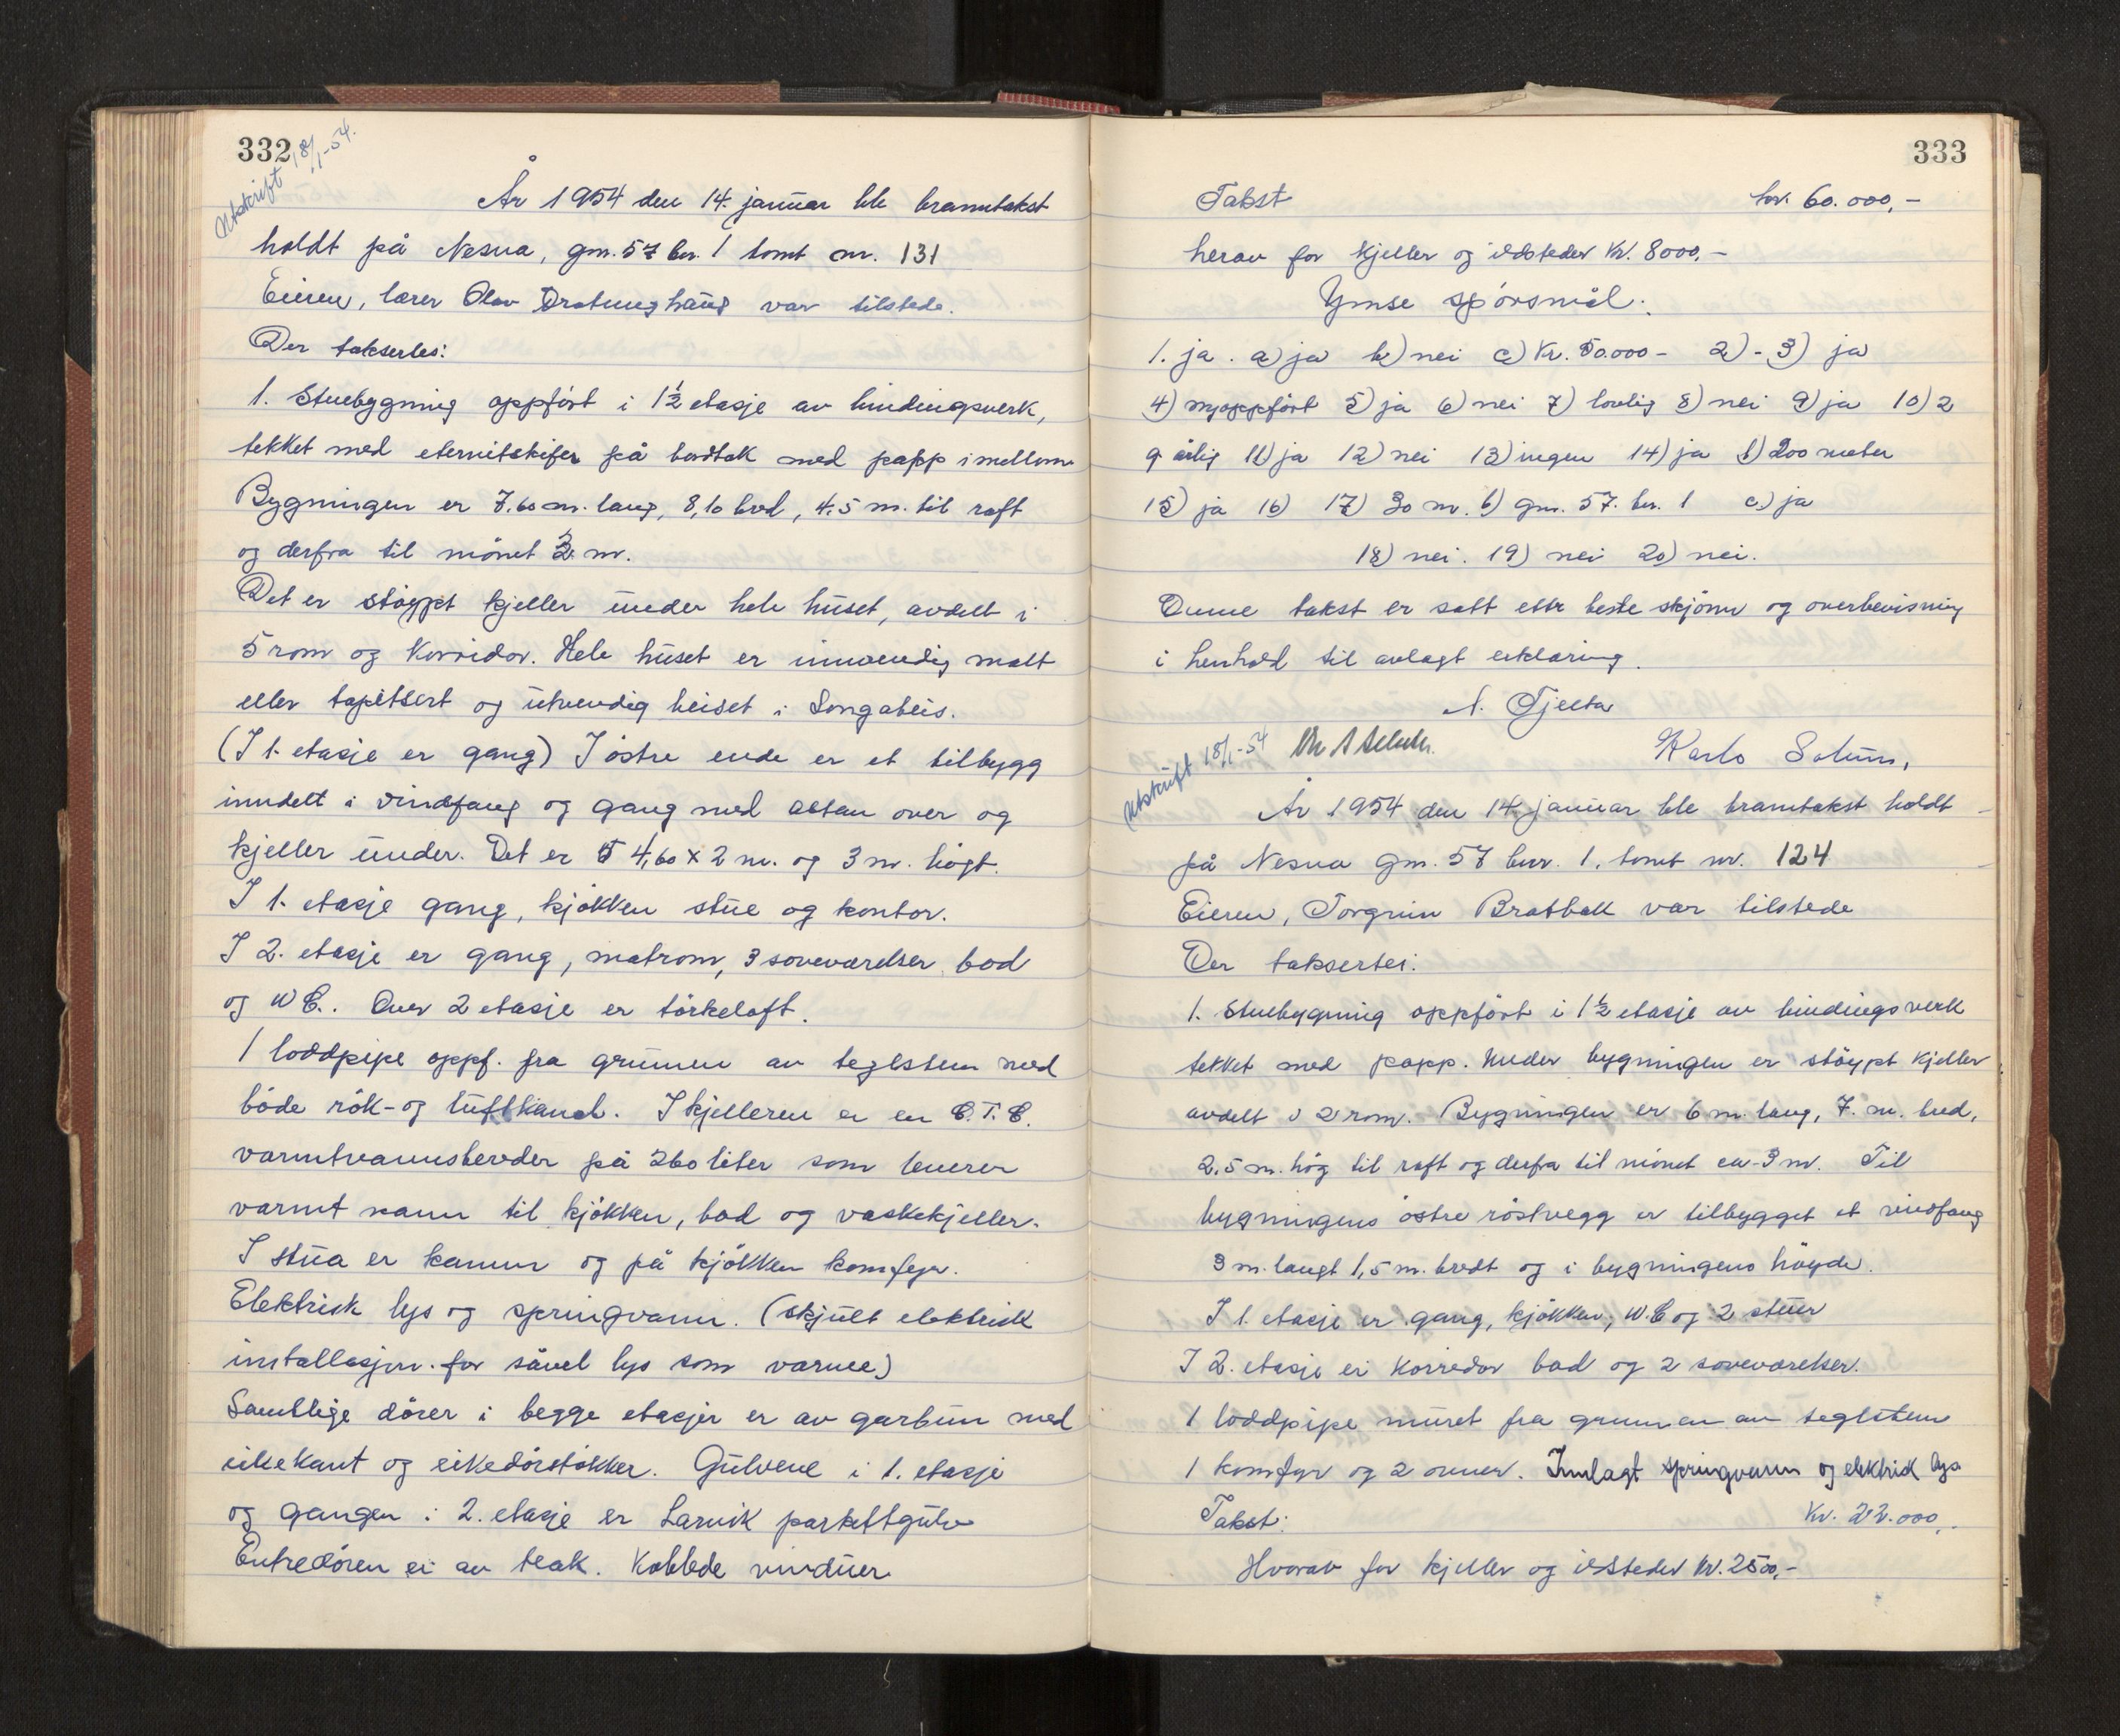 332
Utskrift 18/1-54.
År 1954 den 14. januar ble branntakst
holdt på Nesna, gn. 57 bn. 1 tomt nr. 131
Eieren, lærer Olav Dratunghaug var tilstede.
Der taksertes:
1. Stuebygning oppfört i 1½ etasje av bindingsverk,
tekket med eternitskifer på bordtak med papp imellom
Bygningen er 7,60 m. lang, 8,10 bred, 4,5 m. til raft
og derfra til mönet 3 m.
Det er stöypt kjeller under hele huset, avdelt i
5 rom og korridor. Hele huset er innvendig malt
eller tapetsert og utvendig beiset i Songabeis.
(I 1. etasje er gang) I östre ende er et tilbygg
inndelt i vindfang og gang med altan over og
kjeller under. Det er 4,60 x 2 m. og 3 m. högt.
I 1. etasje gang, kjökken stue og kontor.
I 2. etasje er gang, matrom, 3 soveværelser bad
og W C.. Over 2 etasje er törkeloft.
1 loddpipe oppf. fra grunnen av teglsten med
både rök- og luftkanal. I kjelleren er en C.T.C.
varmtvannsbereder på 260 liter som leverer
varmt vann til kjökken, bad og vaskekjeller.
I stua er kamin og på kjökken komfyr.
Elektrisk lys og springvann. (skjult elektrisk
installasjon for såvel lys som varme)
Samtlige dörer i begge etasjer er av garbun med
eikekant og eikedörstokker. Gulvene i 1. etasje
og gangen i 2. etasje er Larvik parkettgulv
Entredören er av teak. Koblede vinduer
333
Takst kr. 60.000,-
herav for kjeller og ildsteder kr. 8000.-
Ymse spörsmål:
1. ja. a) ja b) nei c) Kr. 50.000 - 2) - 3) ja
4) nyoppfört 5) ja 6) nei 7) lovlig 8) nei 9) ja 10) 2
g årlig 11) ja 12) nei 13) ingen 14) ja b) 200 meter
15) ja 16) 17) 30 m. b) gn. 57. bn. 1 c) ja
18) nei. 19) nei 20) nei.
Denne takst er satt etter beste skjönn og overbevisning
i henhold til avlagt erklæring.
A. Tjelta
Karlo Solum,
Utskrift 18/1-54
År 1954 den 14 januar ble branntakst holdt
på Nesna gn. 57 bnr. 1. tomt nr. 124
Eieren, Torgrim Bratbak var tilstede
Der takserter:
1. Stuebygning oppfört i 1½ etasje av bindingsverk
tekket med papp. Under bygningen er stöypt kjeller
avdelt i 2 rom. Bygningen er 6 m. lang, 7. m. bred,
2,5 m. hög til raft og derfra til mönet ca 3 m. Til
bygningens östre röstvegg er tilbygget et vindfang
3 m. langt 1,5 m. bredt og i bygningens höyde.
I 1. etasje er gang, kjökken, W.C og 2 stuer
I 2. etasje er korredor bad og 2 soveværelser.
1 loddpipe muret fra grunnen av teglsten
1 komfyr og 2 ovner. Innlagt springvann og elektrisk lys
Takst: Kr. 22.000,.
Hvorav for kjeller og ildsteder kr. 2500,-